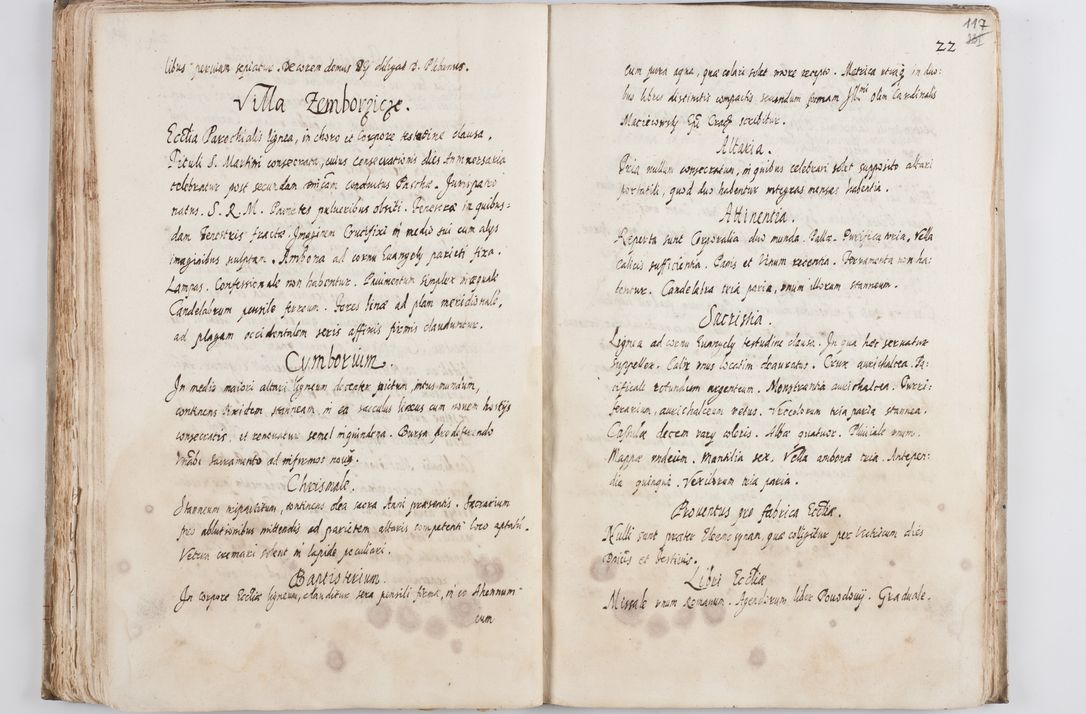 libus perviam sepiatur. Decorem domus Dei diligat D. Plebanus.
Villa Zemborzicze.
Ecclia Parochialis lignea, in choro et Corpore testudine clausa,
Tituli S. Martini consecrata, cuius consecrationis dies Anniversaria
celebratur post secundam conductus Paschæ. Jurispatro
natus. S. R. M. Parietes pulueribus obsiti. Fenestræ in quibus-
dam fenestris fractæ. Imaginem Crucifixi in medio sui cum alijs
imaginibus sculptam. Ambona ad cornu Euangely parieti fixa.
Lampas. Confessionale non habentur. Pauimentum simplex inæquale
Candelabrum pensile ferreum. Fores binæ ad plam meridionalē,
ad plagam occidentalem seris affixis firmis clauduntur.
Cymborium.
In medio maiori altari ligneum decenter pictum, intus mundum,
continens pixidem stanneam, in ea sacculus lineus cum novem hostijs
consecratis, et renovatur semel in quindena. Bursa pro deferendo
sacramento ad infirmos
Chrismale.
Stanneum tripartitum, continens olea sacra Anni præsentis. Sacrarium
pro ablutionibus mittendis ad parietem altaris competenti loco
Vetera cremari solent in lapide peculiari.
Baptisterium.
In corpore Eccliæ ligneum, clauditur sera pensili firma, in eo Ahennum
cum
117
22
cum pura aqua, quæ colari solet more recepto. Matrica utraq in duo-
bus libris distinctis compactis secundum formam Illmi olim Cardinalis
Macieiowsky Epi Crac scribitur.
Altaria.
Tria nullum consecratum, in quibus celebrari solet supposito altari
portatili, quod duo habentur integras mensas habentia.
Attinentia.
Reperta sunt Corporalia duo munda. Pallæ. Purificatoria, Vela
calicis sufficientia. Panis et Vinum recentia. Ferramenta non ha-
bentur. Candelabra tria paria, unum illorum stanneum.
Sacristia.
Lignea ad cornu Euangely testudine clausa. In qua hæc servatur
suppellex. Calix unus locatim deauratus. Crux aurichalcea. Pa-
cificale rotundum argenteum. Monstrantia aurichalcea. Turri-
ferarium, aurichalceum vetus. Vrceolorum tria paria stannea.
Casulæ decem varij coloris. Albæ quatuor. Pluuiale unum.
Mappæ undecim. Mantilia sex. Vella ambonæ tria. Antepen-
dia quinque. Vexillorum tria paria.
Prouentus pro fabrica Eccliæ.
Nulli sunt præter Eleemosynam, quæ coligitur per Vitricum dies
et festiuis.
Libri Eccliæ
Missale unum Romanum. Agendorum liber Powodowij. Graduale.